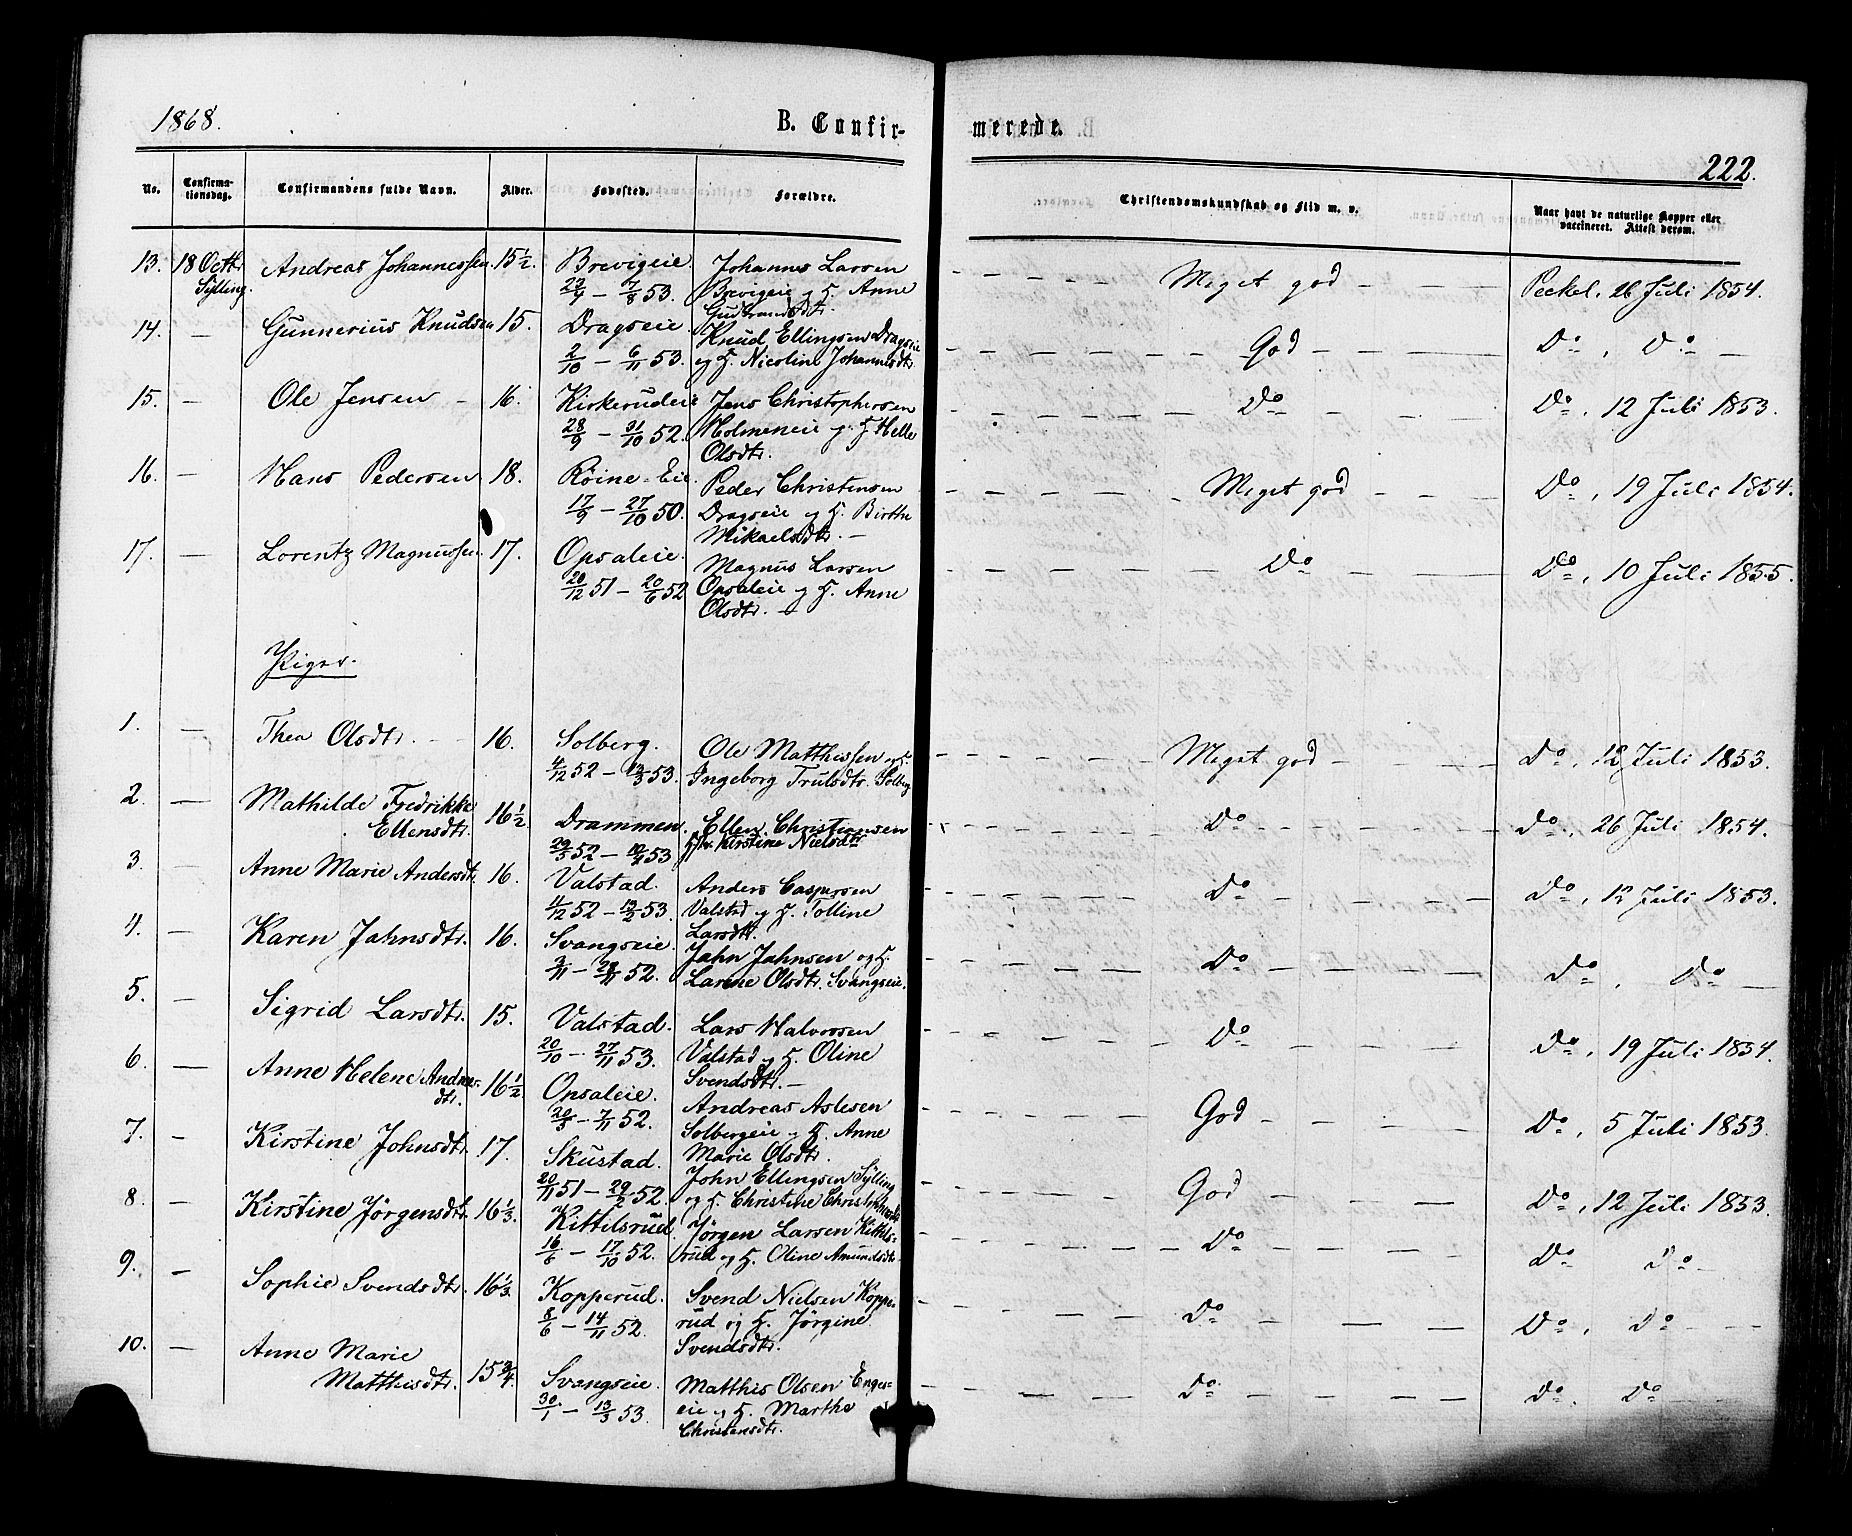 1868.
B. Confir-
merede.
222.
No.
Confirma-
tionsdag.
Confirmandens fulde Navn.
Alder.
Fødested.
Forældre.
Christendomskundskab og Flid m. v.
Naar havt de naturlige Kopper eller
vaccineret. Attest derom.
13. 18 Octbr Andreas Johannessen 15½. Brevigeie Johannes Larsen — — — Meget god — — — Peckel, 26 Juli 1854.
Sylling. 23/4 – 7/8 53. Brevigeie og H. Anne
Gudbrandsdtr.
14. — Gunnerius Knudsen 15. Dragseie Knud Ellingsen Dragseie — — — God — — — Do, Do —
2/10 – 6/11 53. og H. Nicoline Johannesdtr
15. — Ole Jensen — 16. Kirkerudeie Jens Christophersen — — — Do — — — Do, 12 Juli 1853.
28/9 – 31/10 52. Holmeneie og H. Helle
Olsdtr.
16. — Hans Pedersen 18. Röine-Eie. Peder Christensen — — — Meget god — — — Do, 19 Juli 1854.
17/9 – 27/10 50. Dragseie og H. Birthe
Mikaelsdtr. —
17. — Lorentz Magnussen 17. Opsaleie. Magnus Larsen — — — Do — — — Do, 10 Juli 1855.
20/12 51 – 20/6 52 Opsaleie og H. Anne
Olsdtr. —
Piger.
1. — Thea Olsdtr. — 16. Solberg. Ole Matthissen og H. — — — Meget god — — — Do, 12 Juli 1853.
4/12 52 – 13/3 53. Ingeborg Trulsdtr. Solberg
2. — Mathilde Fredrikke 16½. Drammen. Ellen Christiansen — — — Do — — — Do, 26 Juli 1854.
Ellensdtr. 52 – 53 Kirstine Nielsdtr
3. — Anne Marie Andersdtr. 16. Valstad. Anders Caspersen — — — Do — — — Do, 12 Juli 1853.
4/12 52 – 13/2 53. Valstad og H. Tolline
Larsdtr.
4. — Karen Jahnsdtr. 16. Svangseie. Jahn Jahnsen og H. — — — Do — — — Do, Do —
2/11 – 52. Larine Olsdtr. Svangseie.
5. — Sigrid Larsdtr. 15. Valstad. Lars Halvorsen — — — Do — — — Do, 19 Juli 1854.
20/10 – 27/11 53. Valstad og H. Oline
Svendsdtr. —
6. — Anne Helene Andreas- 16½ Opsaleie. Andreas Aslesen — — — God — — — Do, 5 Juli 1853.
dtr. 20/5 – 7/11 52. Solbergeie og H. Anne
Marie Olsdtr.
7. — Kirstine Johnsdtr. 17. Skustad. John Ellingsen Sylling — — — God — — — Do, 12 Juli 1853.
20/11 51 – 29/2 52. og H. Christine Christophersdtr
8. — Kirstine Jörgensdtr. 16⅓. Kittilsrud. Jörgen Larsen Kittils- — — — Do — — — Do Do —
16/6 – 17/10 52. rud og H. Oline Amundsdtr.
9. — Sophie Svendsdtr. 16⅓ Kopperud. Svend Nielsen Koppe- — — — Do — — — Do, Do — —
8/6 – 14/11 52. rud og H. Jörgine
Svendsdtr.
10. — Anne Marie 15¾. Svangseie. Matthis Olsen Enges- — — — Do — — — Do. Do — —
Matthisdtr. 30/1 – 13/3 53. eie og H. Marthe
Christensdtr.